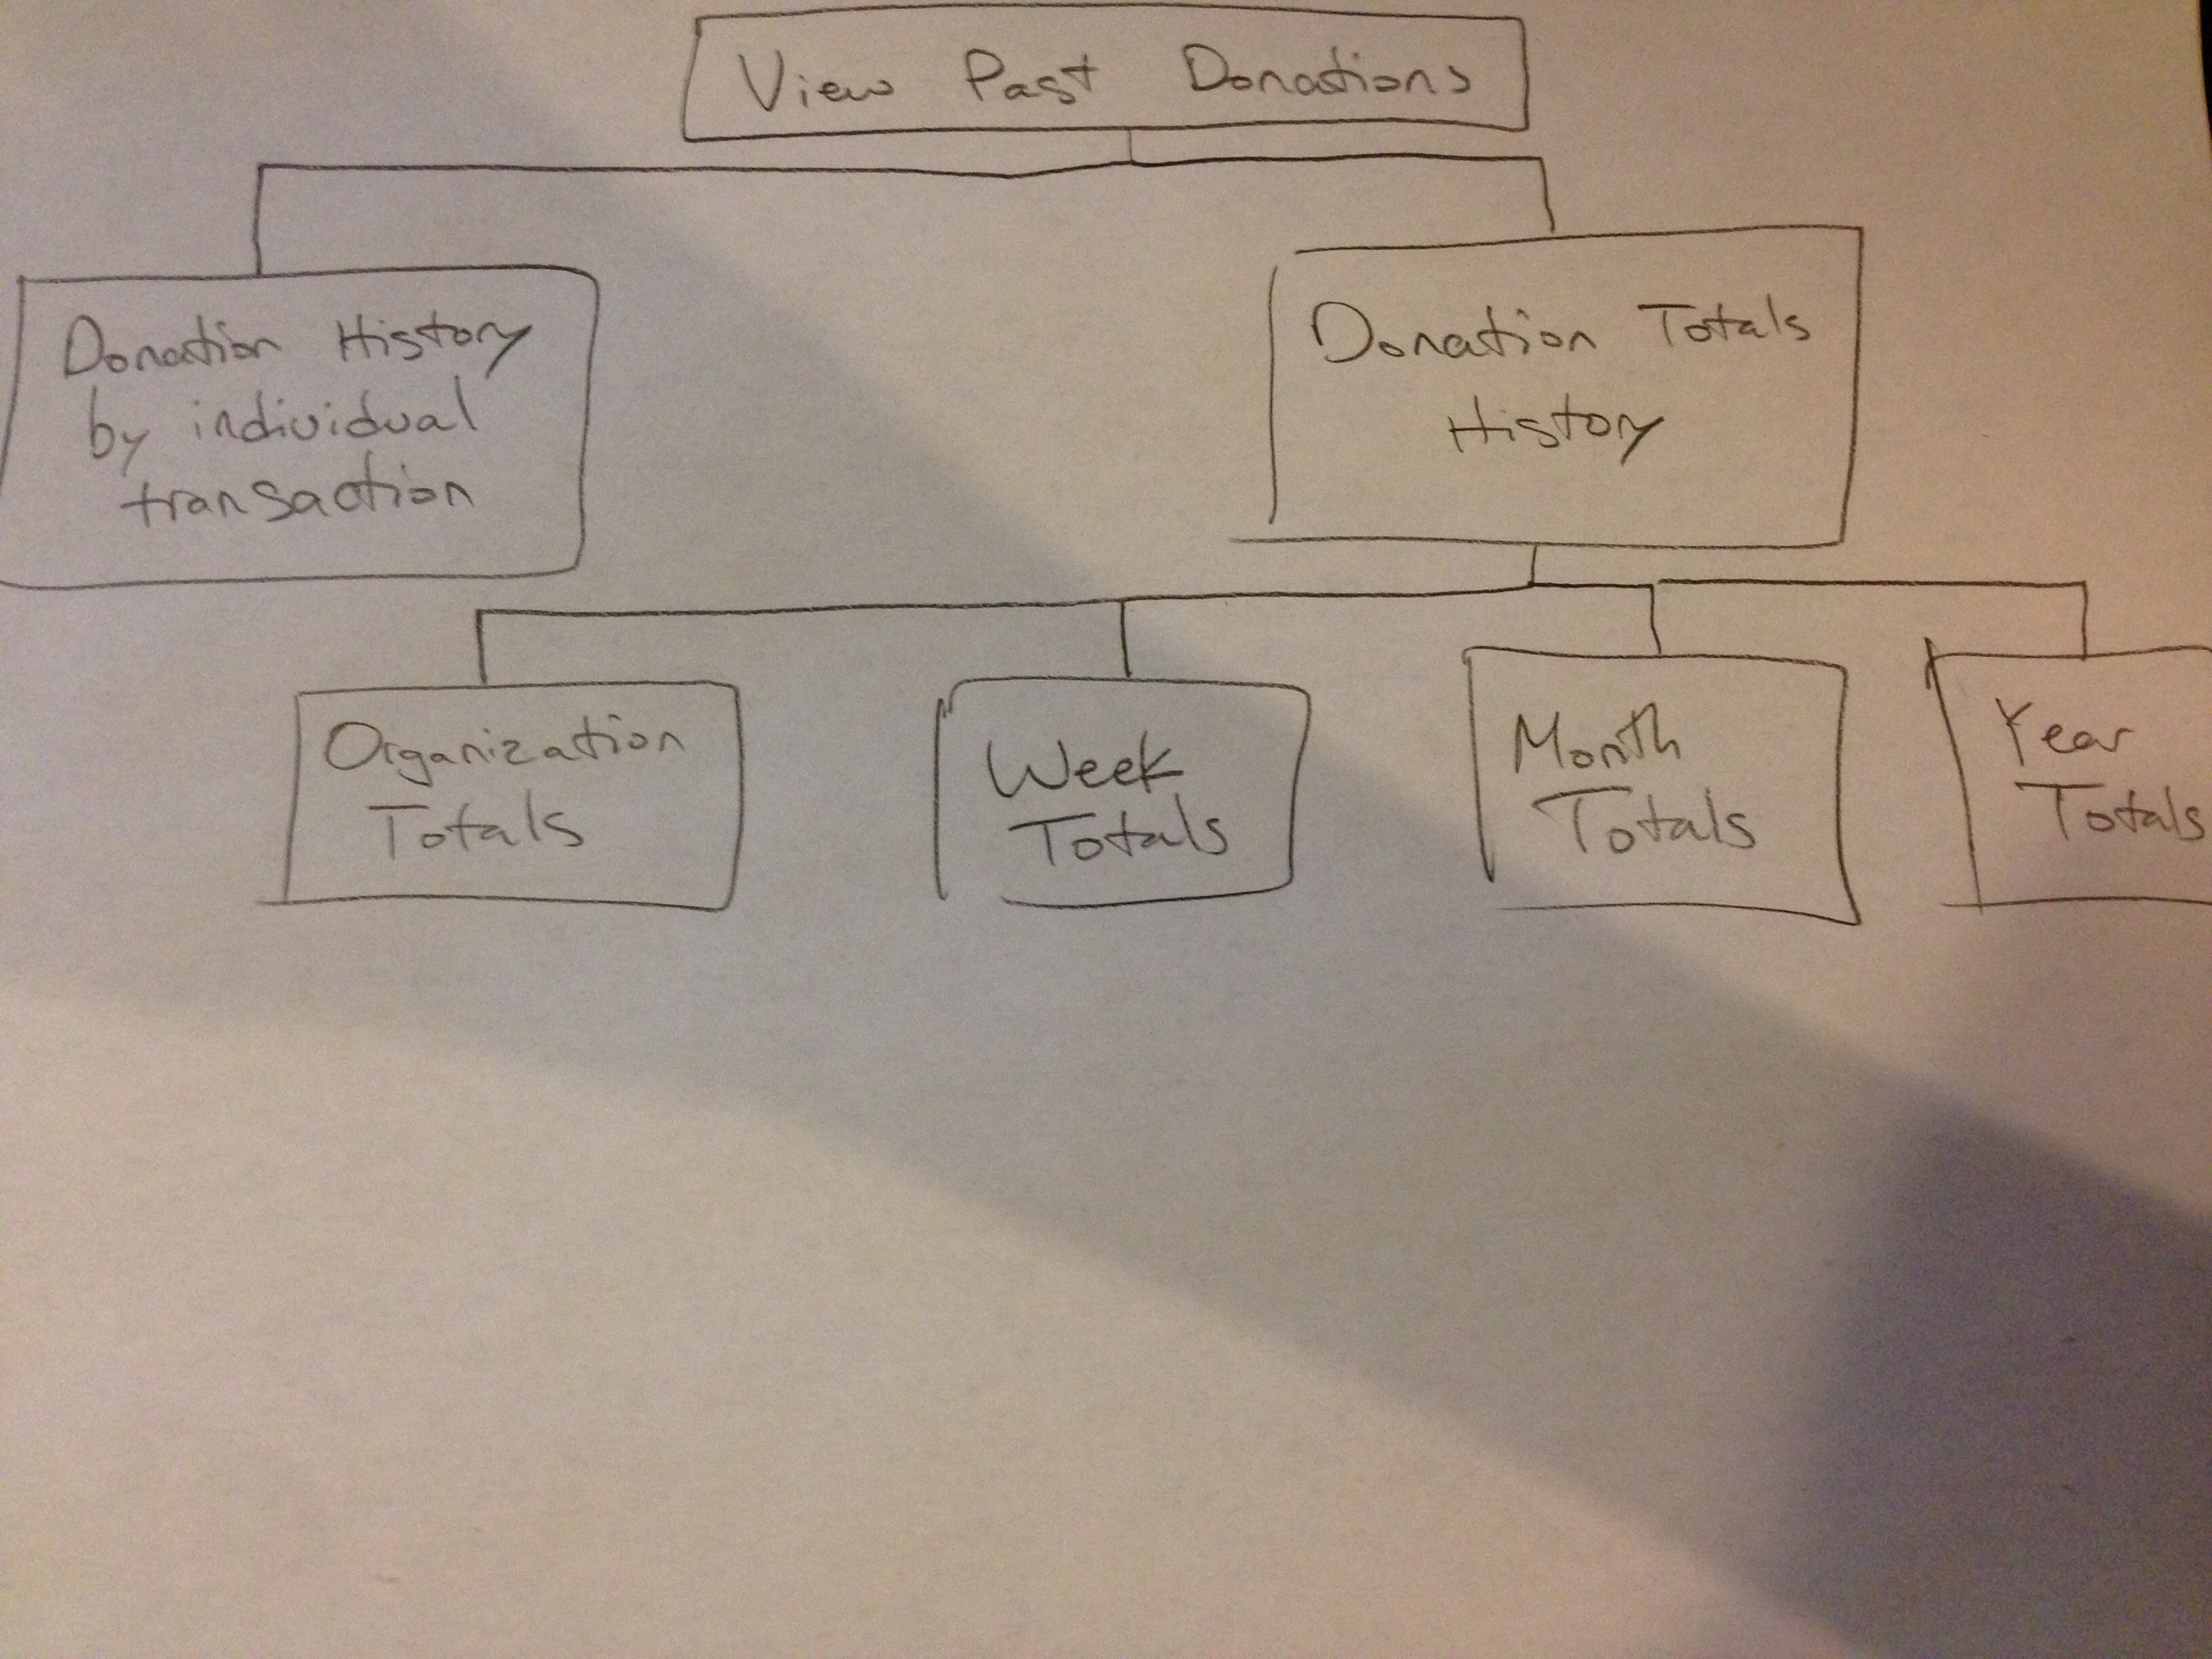 View Past Donations
Donation History
by individual
transaction
Donation Totals
History
Organization
Totals
Week
Totals
Month
Totals
Year
Totals